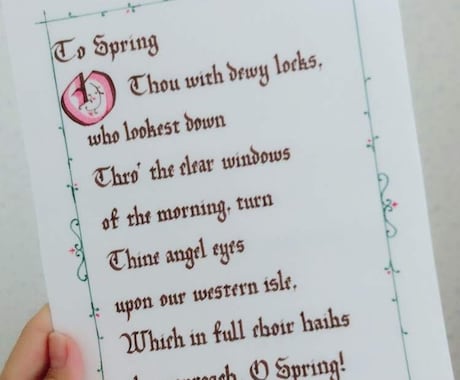 To Spring
O Thou with dewy locks,
who lookest down
Thro' the clear windows
of the morning, turn
Thine angel eyes
upon our western isle,
Which in full choir haihs
approach, O Spring!